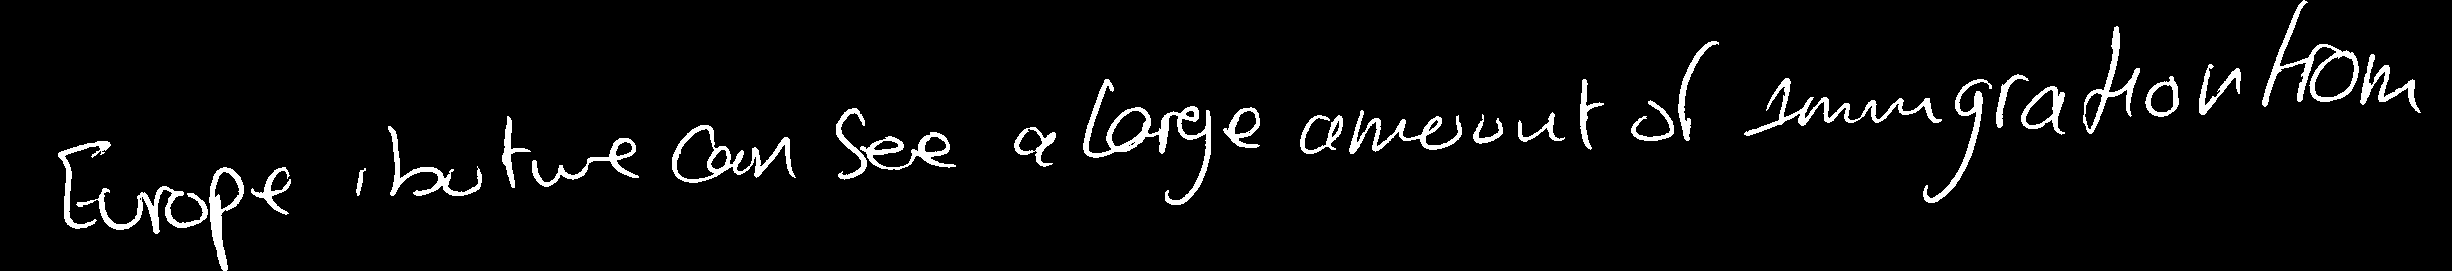 Europe , but we can see a large amount of immigration from